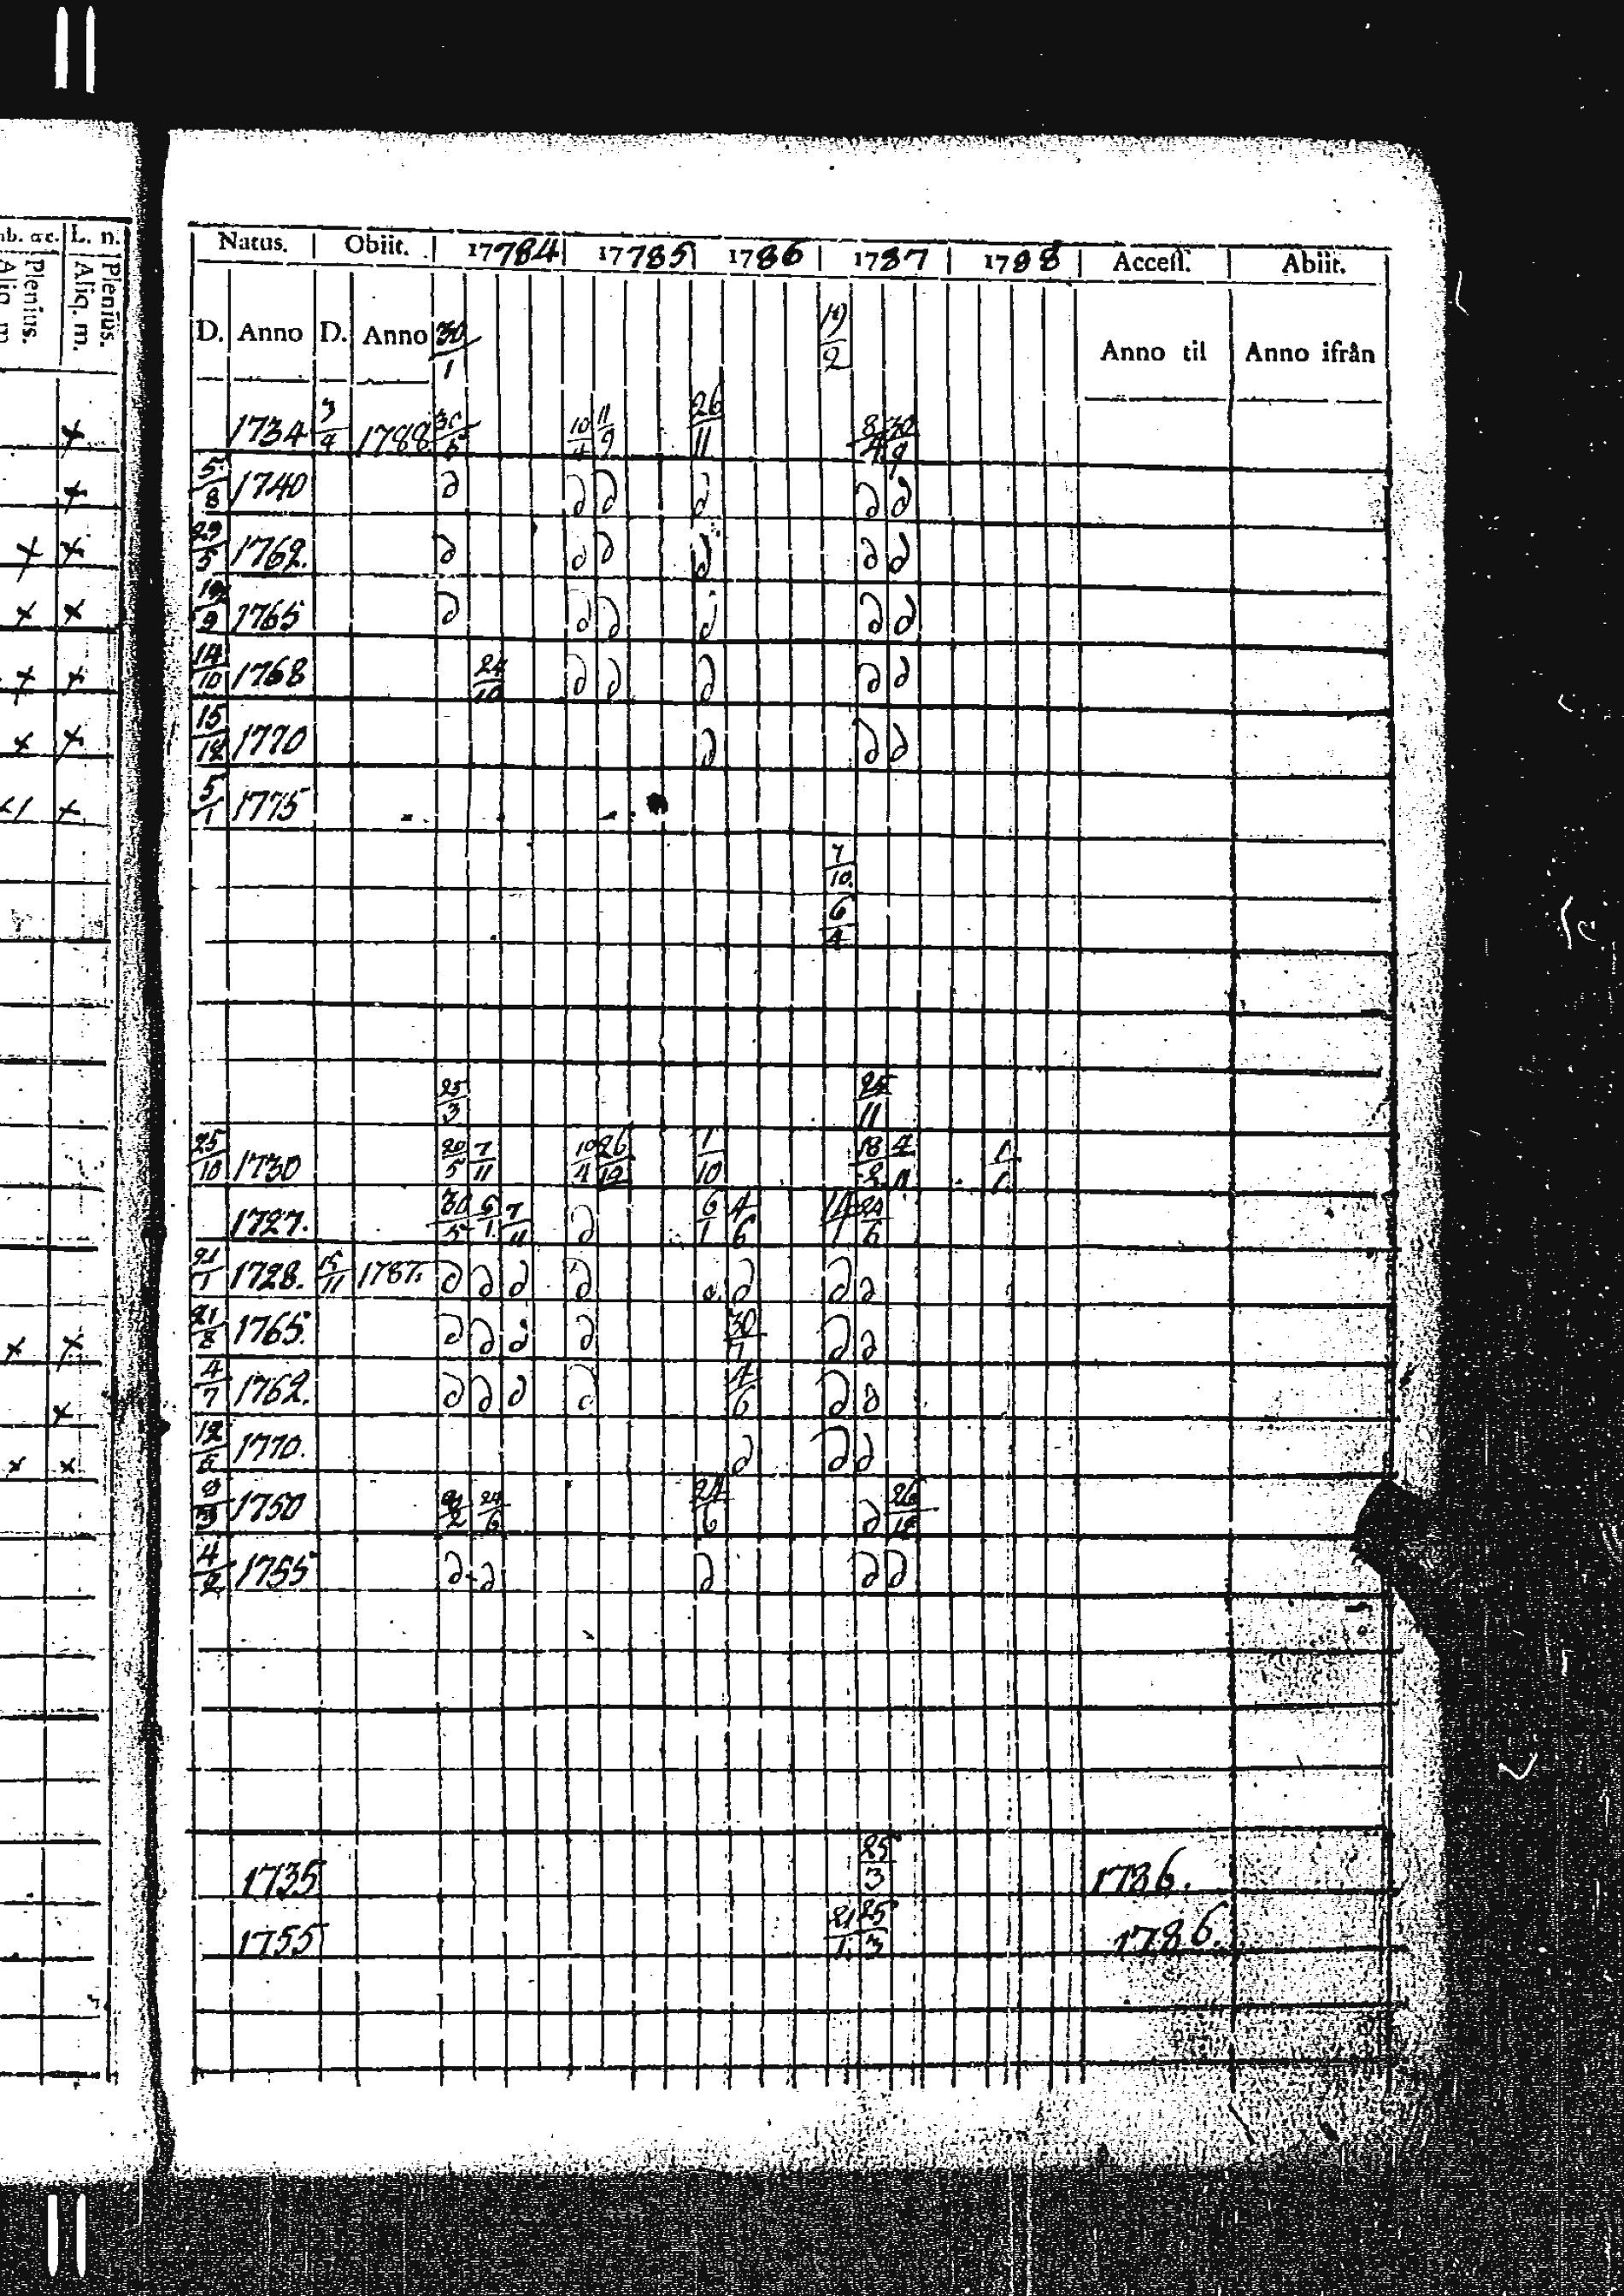 nb. &c. L. n.
Plenius. Aliq. m. Plenius. Aliq. m.
Natus. Obiit. 17784 17785 1786 1787 1788 Access. Abiit.
D. Anno D. Anno 30/1 19/2 Anno til Anno ifrån
1734 3/4 1788 30/5 10/4 11/9 26/11 8/4 30/9
5/8 1740 d d d d d d
23/5 1762. d d d d d d
19/9 1765 d d d d d d
14/10 1768 24/10 d d d d d
15/12 1770 d d d
5/1 1775
7/10.
6/4
25/3 25/11
25/10 1730 20/5 7/11 10/4 26/12 1/10 18/2 4/11
1727. 30/5 6/1 7/11 d 6/1 4/6 14/1 24/6
21/1 1728. 15/11 1787. d d d d d d d d
21/8 1765. d d d d 30/7 d d
4/7 1762. d d d d 4/6 d d
12/8 1770. d d d
1750 24/6 24/6 d 26/12
4/2 1755 d d d d d
1735 25/3 1786.
1755 21/1. 25/3 1786.